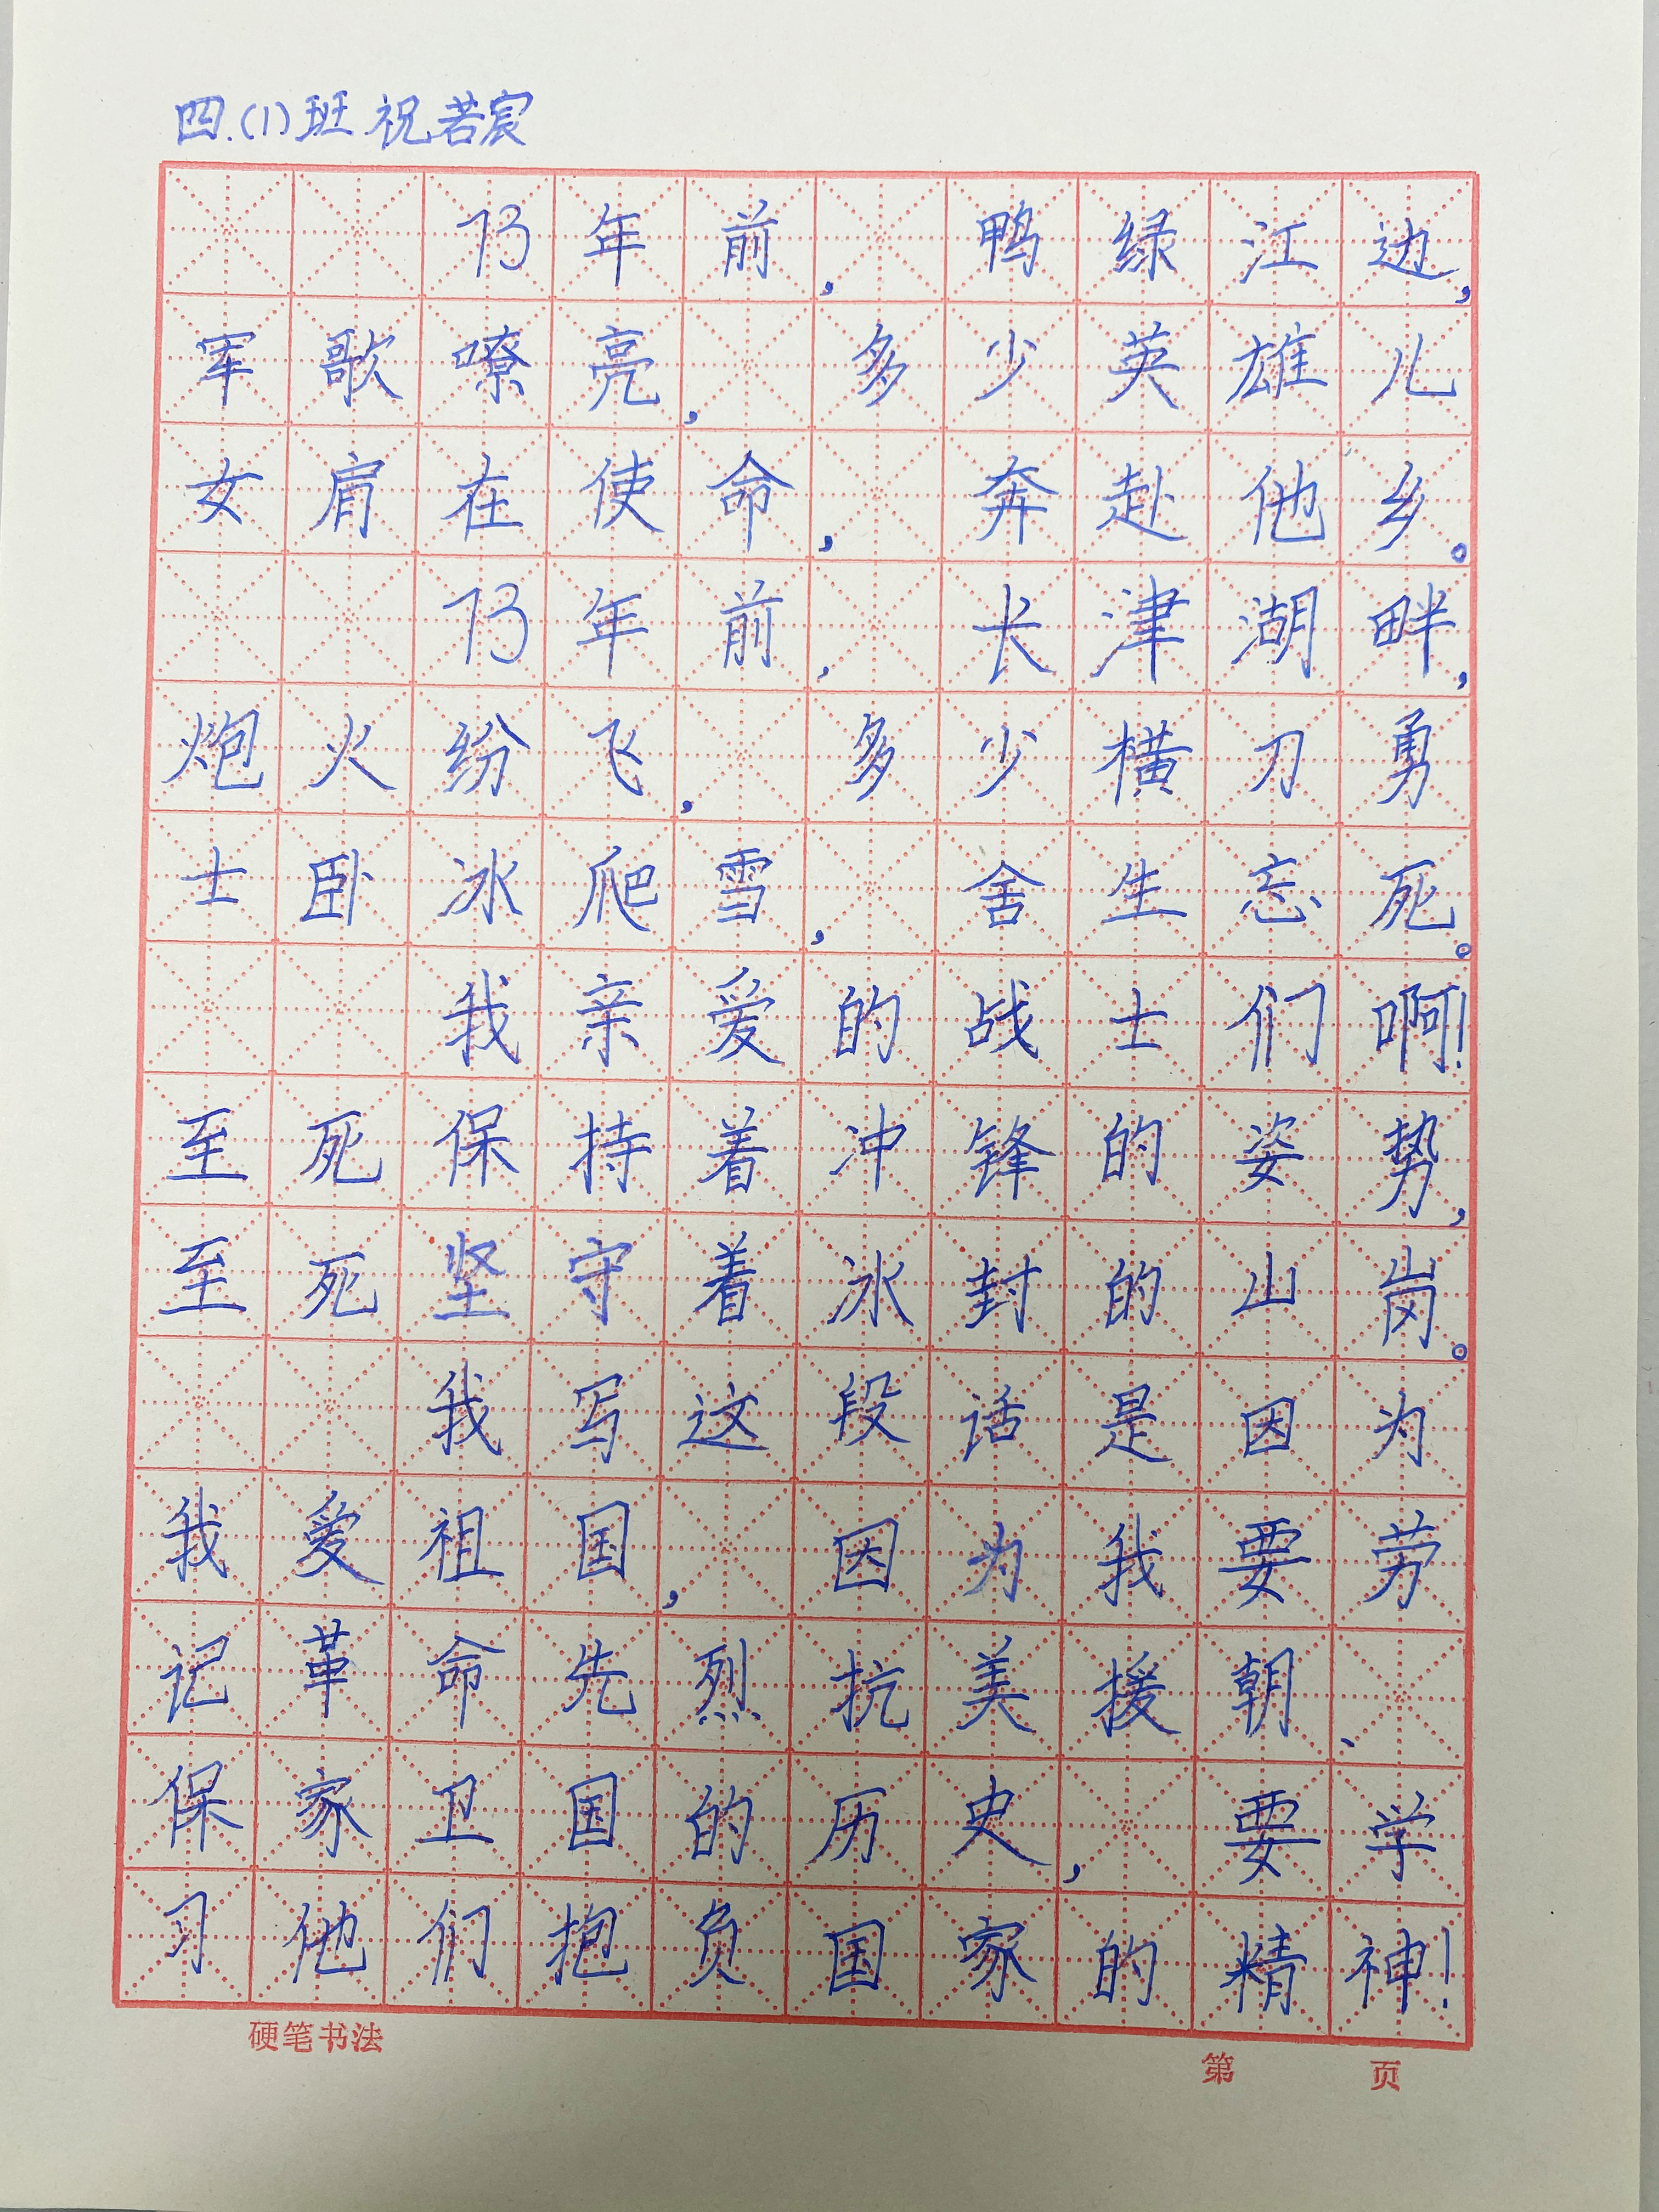 四.(1)班 祝若宸
73年前，鸭绿江边，
军歌嘹亮，多少英雄儿
女肩在使命，奔赴他乡。
73年前，长津湖畔，
炮火纷飞，多少横刀勇
士卧冰爬雪，舍生忘死。
我亲爱的战士们啊！
至死保持着冲锋的姿势，
至死坚守着冰封的山岗。
我写这段话是因为
我爱祖国，因为我要劳
记革命先烈抗美援朝、
保家卫国的历史，要学
习他们抱负国家的精神！
硬笔书法
第 页